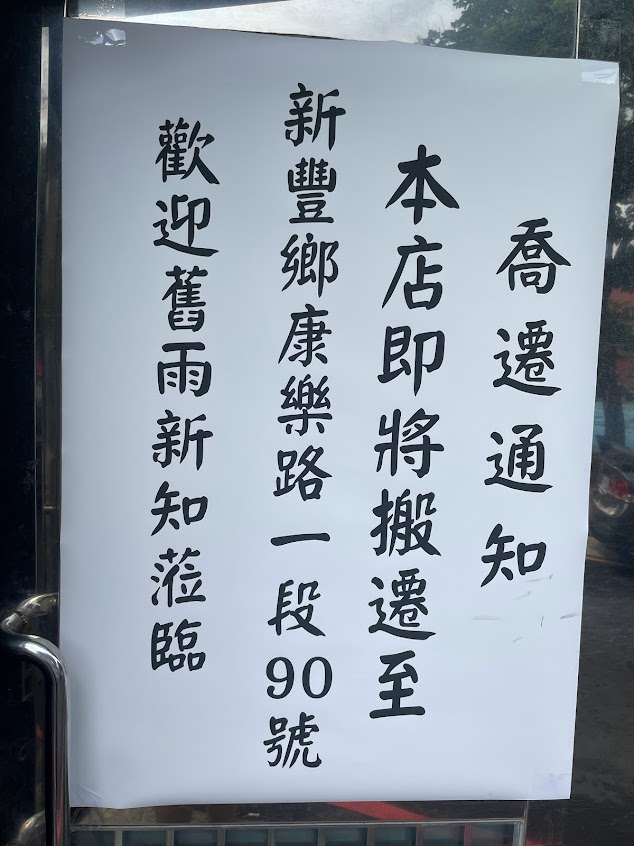 喬遷通知
本店即將搬遷至
新豐鄉康樂路一段90號
歡迎舊雨新知蒞臨